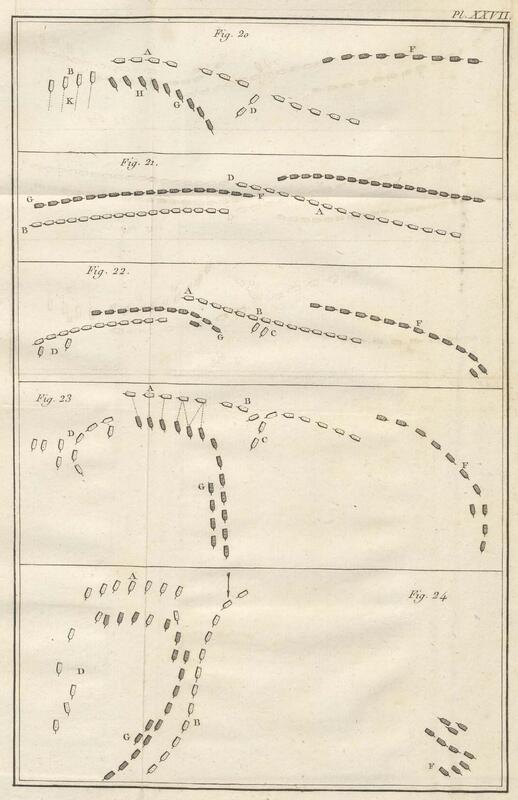 Pl. XXVII.
Fig. 20
A
F
B
K
H
G
D
Fig. 21.
D
G
F
A
B
Fig. 22.
A
B
F
C
G
D
Fig. 23
A
B
D
C
F
G
A
Fig. 24
D
B
G
F